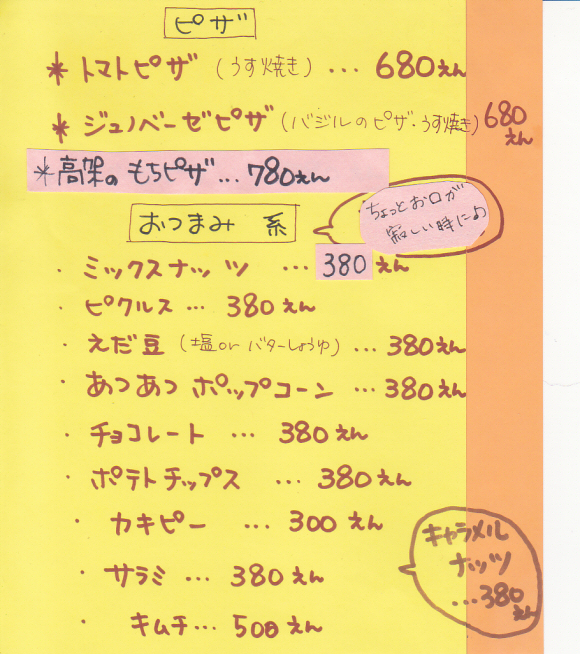 ピザ
＊トマトピザ（うす焼き）… 680えん
＊ジュノベーゼピザ（バジルのピザ・うす焼き）680えん
＊高架のもちピザ… 780えん
おつまみ 系
ちょっとお口が
寂しい時に♪
・ミックスナッツ … 380えん
・ピクルス … 380えん
・えだ豆（塩orバターしょうゆ）… 380えん
・あつあつ ポップコーン … 380えん
・チョコレート … 380えん
・ポテトチップス … 380えん
・カキピー … 300えん
キャラメル
ナッツ
…380えん
・サラミ … 380えん
・キムチ… 500えん